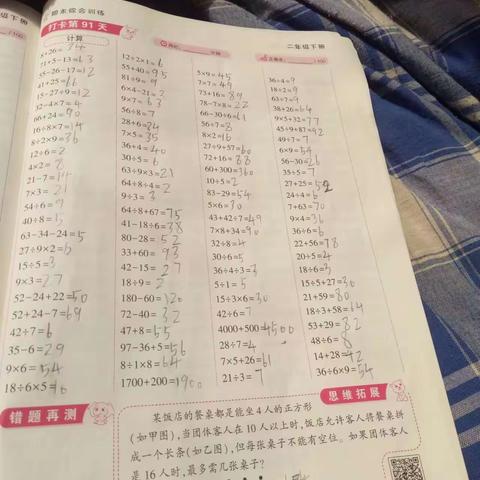 期末综合训练
打卡第 91 天
计算
二年级下册
8+26=34
71+5-13=63
55-26-17=12
41+25=66
15-27÷9=12
32-4×7=4
66+24=90
16÷8×7=14
8÷2×9=36
12÷6=2
4×2=8
21-7=14
7×3=21
54÷6=9
40÷8=5
63-34-24=5
27÷9×2=6
15÷5=3
9×3=27
52-24+22=50
52+24-7=69
42÷7=6
35-6=29
9×6=54
18÷6×5=
12÷2×1=6
55+40=95
81÷9=9
6×4-21=3
9×7=63
56÷8=7
28+6=34
7×5=35
36+4=40
30÷5=6
63÷9×3=21
64÷8÷4=2
9÷3=3
64÷8+67=75
41-18÷6=38
80-28=52
33+60=93
42-15=27
18÷9=2
180-60=120
72-40=32
47+8=55
97-36+5=56
8÷1×8=64
1700+200=1900
5×9=45
7×7=49
73+16=89
78-7×8=22
66-30÷6=61
56÷7=8
8×2=16
27÷9+57=60
72+16=88
60+300=360
10÷5=2
83-29=54
5×6=30
43+42÷7=49
7×8+34=90
32÷8=4
30÷6=5
36÷4÷3=3
5÷1=5
15÷3×6=30
42÷6=7
4000+500=4500
28÷7=4
7×5+26=61
21÷3=7
36÷4=9
18÷2=9
63÷7=9
38+26=64
9×5+32=77
45÷9+87=92
49÷7=7
6×9=54
56-30=26
35÷5=7
27+25=52
24÷4=6
7+63=70
9×4=36
36÷6=6
22+56=78
20÷5=4
18÷6=3
15÷5+27=30
21+59=80
18÷3+58=64
53+29=82
48÷6=8
14+28=42
36÷6×9=54
错题再测
思维拓展
某饭店的餐桌都是能坐 4 人的正方形
(如甲图),当团体客人在 10 人以上时,饭店允许客人将餐桌拼
成一个长条(如乙图),但每张桌子不能有空位。如果团体客人
是 16 人时,最多需几张桌子?